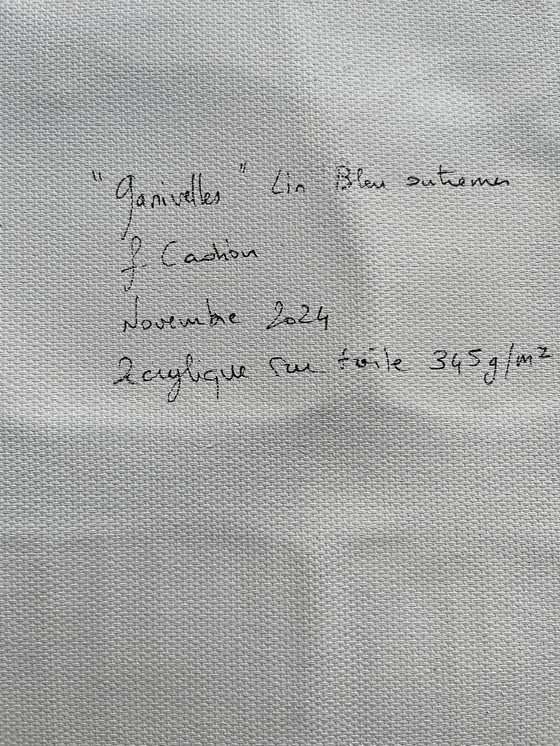 "Ganivelles" Lin Bleu outremer
f. Cachon
Novembre 2024
Acrylique sur toile 345g/m²